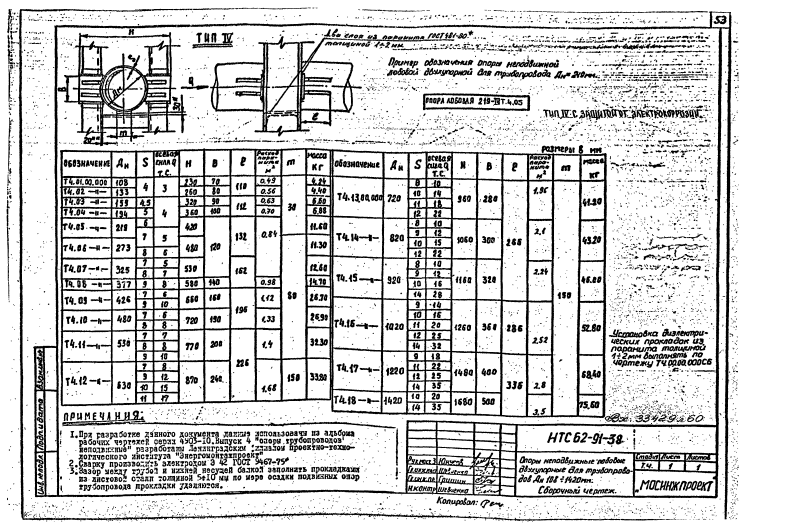 53
ТИП IV
Два слоя из паронита ГОСТ 481-80*
толщиной 1÷2 мм.
Пример обозначения опоры неподвижной
лобовой двухупорной для трубопровода Дн=219мм.
ОПОРА ЛОБОВАЯ 219-IV Т.4.05
ТИП IV С ЗАЩИТОЙ ОТ ЭЛЕКТРОКОРРОЗИИ.
размеры в мм
ОБОЗНАЧЕНИЕ Дн S осевая сила Q Т.С. H B ℓ Расход паронита м² m масса кг
Т4.01.00.000 108 4 3 230 70 110 0,49 30 4.24
Т4.02 -"- 133 260 80 0,56 4,40
Т4.03 -"- 159 4,5 320 90 112 0,63 6.60
Т4.04 -"- 194 5 4 360 100 0.70 6,86
Т4.05 -"- 219 6 420 132 0,84 11.60
Т4.06 -"- 273 7 5 480 120 11.30
8 6
Т4.07 -"- 325 7 5 530 162 12.60
8 7
Т4.08 -"- 377 9 8 580 140 0.98 14.70
Т4.09 -"- 426 7 6 660 160 196 1,12 80 26.30
9 10
Т4.10 -"- 480 7 6 720 190 1,33 26,90
8 8
Т4.11 -"- 530 7 7 770 200 226 1,4 32.30
8 8
9 10
Т4.12 -"- 630 7 8 870 240 1,68 150 33,90
9 12
10 15
11 17
обозначение Дн S осевая сила Q Т.С. H B ℓ Расход паронита м² m масса кг
Т4.13.00.000 720 8 10 960 280 266 1,96 150 41.90
10 14
11 18
12 22
Т4.14 -"- 820 8 10 1060 300 2,1 43,20
9 12
10 15
12 22
Т4.15 -"- 920 8 10 1160 320 2,24 46.00
9 12
10 16
14 28
Т4.16 -"- 1020 9 14 1260 360 286 2,52 52.80
10 16
11 20
12 25
14 32
Т4.17 -"- 1220 9 18 1480 400 336 2,8 68,40
11 22
12 25
14 35
Т4.18 -"- 1420 10 20 1680 500 3,5 75,60
14 35
Установка диэлектри-
ческих прокладок из
паронита толщиной
1÷2 мм выполнять по
чертежу Т4.00.00.000СБ
ПРИМЕЧАНИЯ:
1.При разработке данного документа данные использованы из альбома
рабочих чертежей серии 4903-10,Выпуск 4 "опоры трубопроводов
неподвижные" разработаны Ленинградским филиалом проектно-техно-
логического института "Энергомонтажпроект"
2.Сварку производить электродом Э 42 ГОСТ 9467-75*
3.Зазор между трубой и нижней несущей балкой заполнить прокладками
из листовой стали толщиной 5÷10 мм по мере осадки подвижных опор
трубопровода прокладки удаляются.
33429 л 60
НТС 62-91-38
Опоры неподвижные лобовые
двухупорные для трубопрово-
дов Дн 108÷1420мм.
Сборочный чертеж.
Стадия Лист Листов
Т.Ч. 1 1
"МОСИНЖПРОЕКТ"
Копировал: